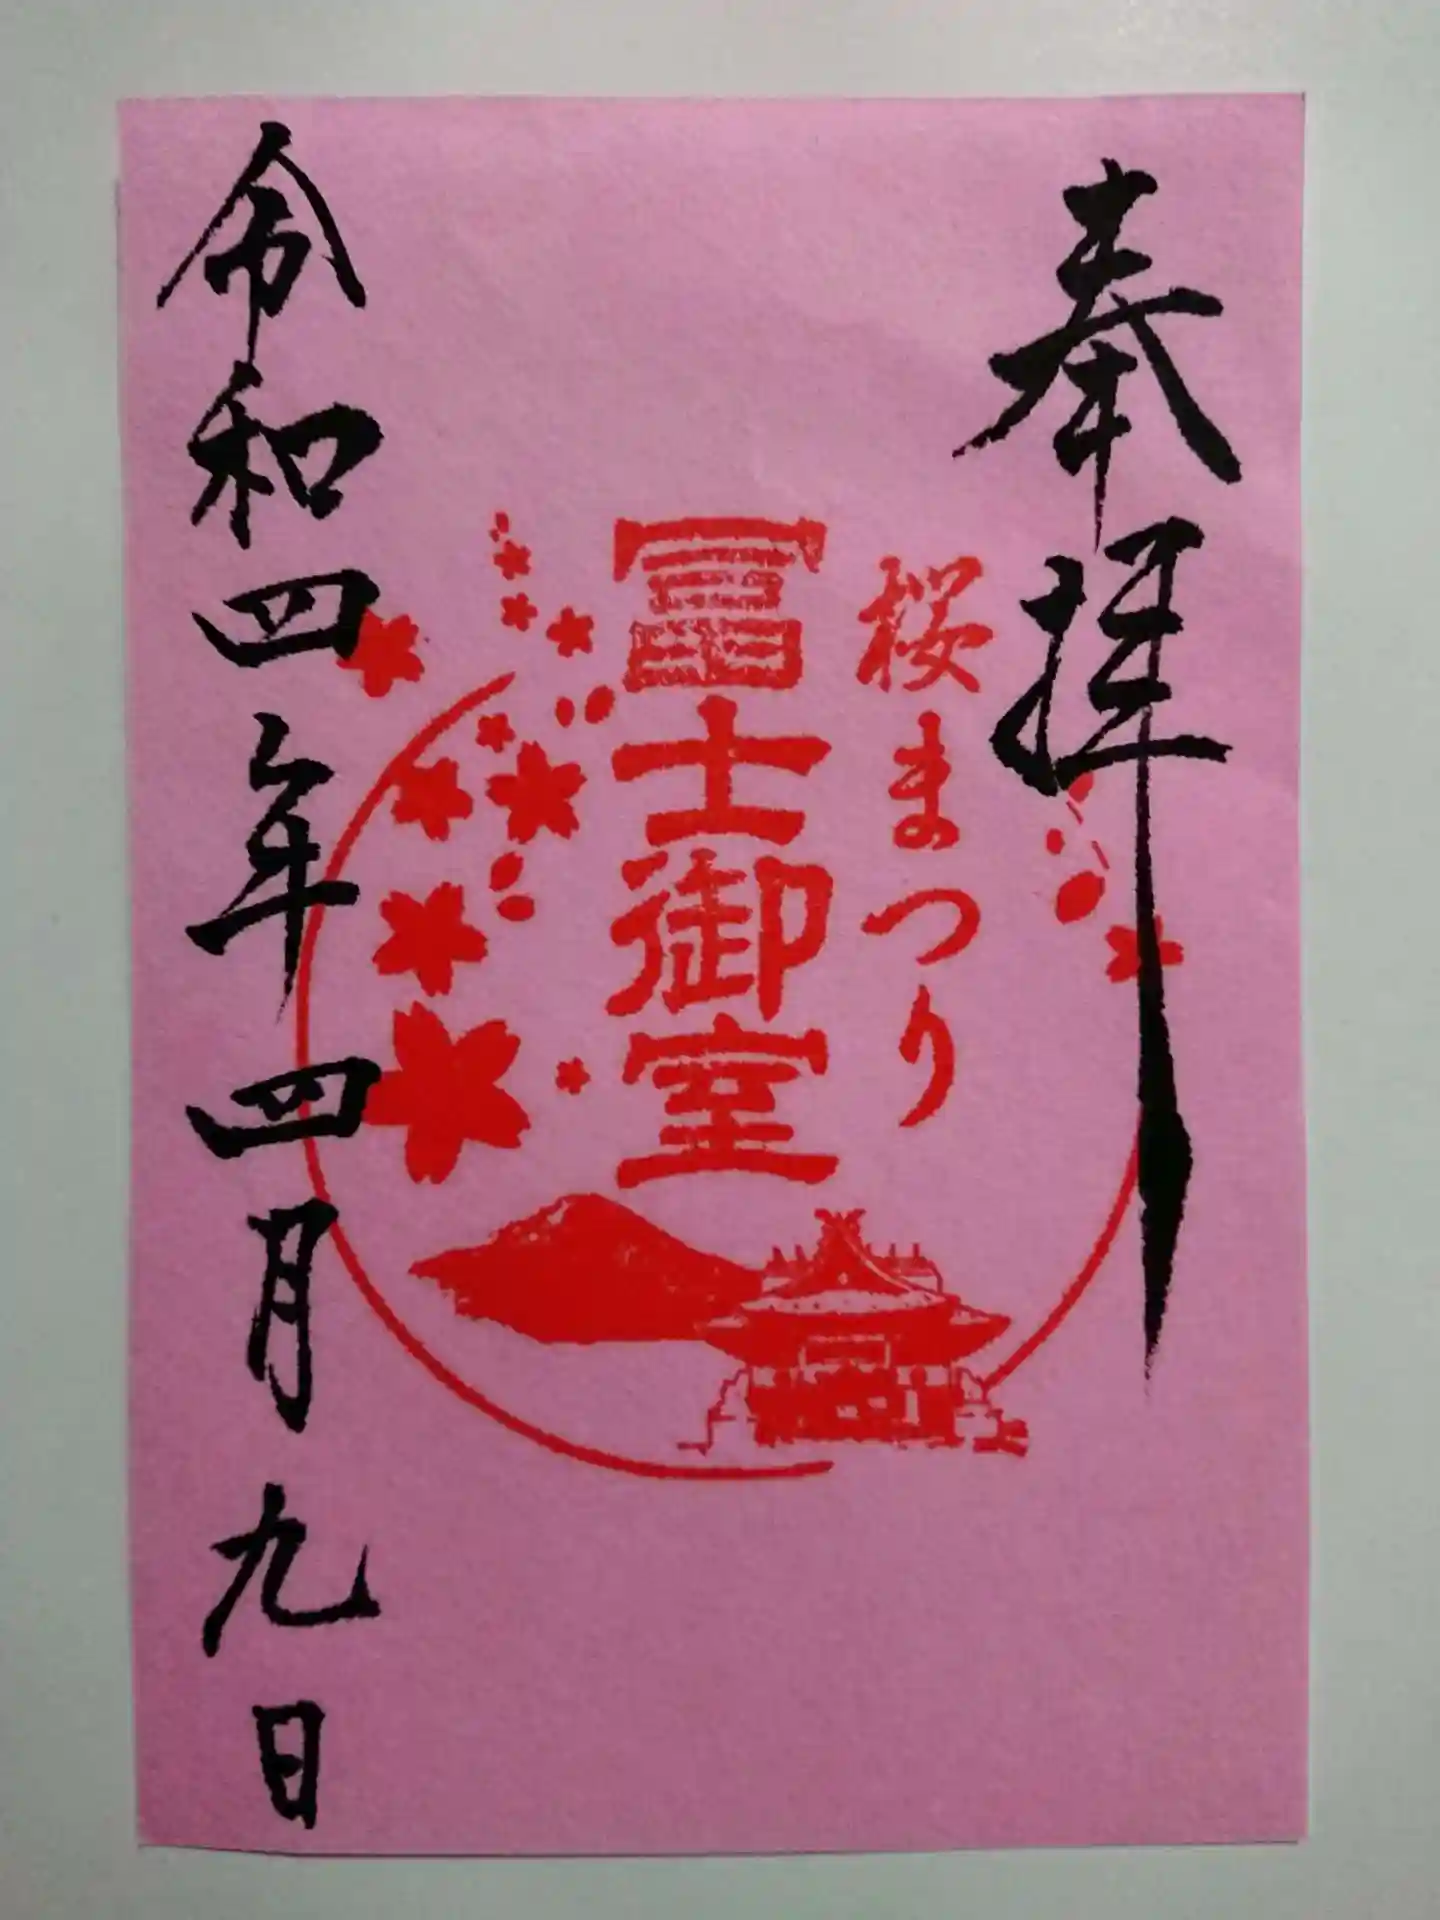 奉拝
桜まつり
冨士御室
令和四年四月九日